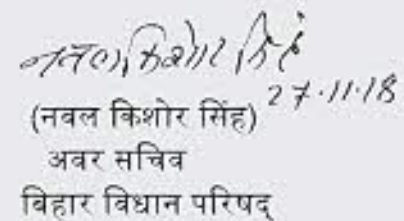 नवल किशोर सिंह
27.11.18
(नवल किशोर सिंह)
अवर सचिव
बिहार विधान परिषद्